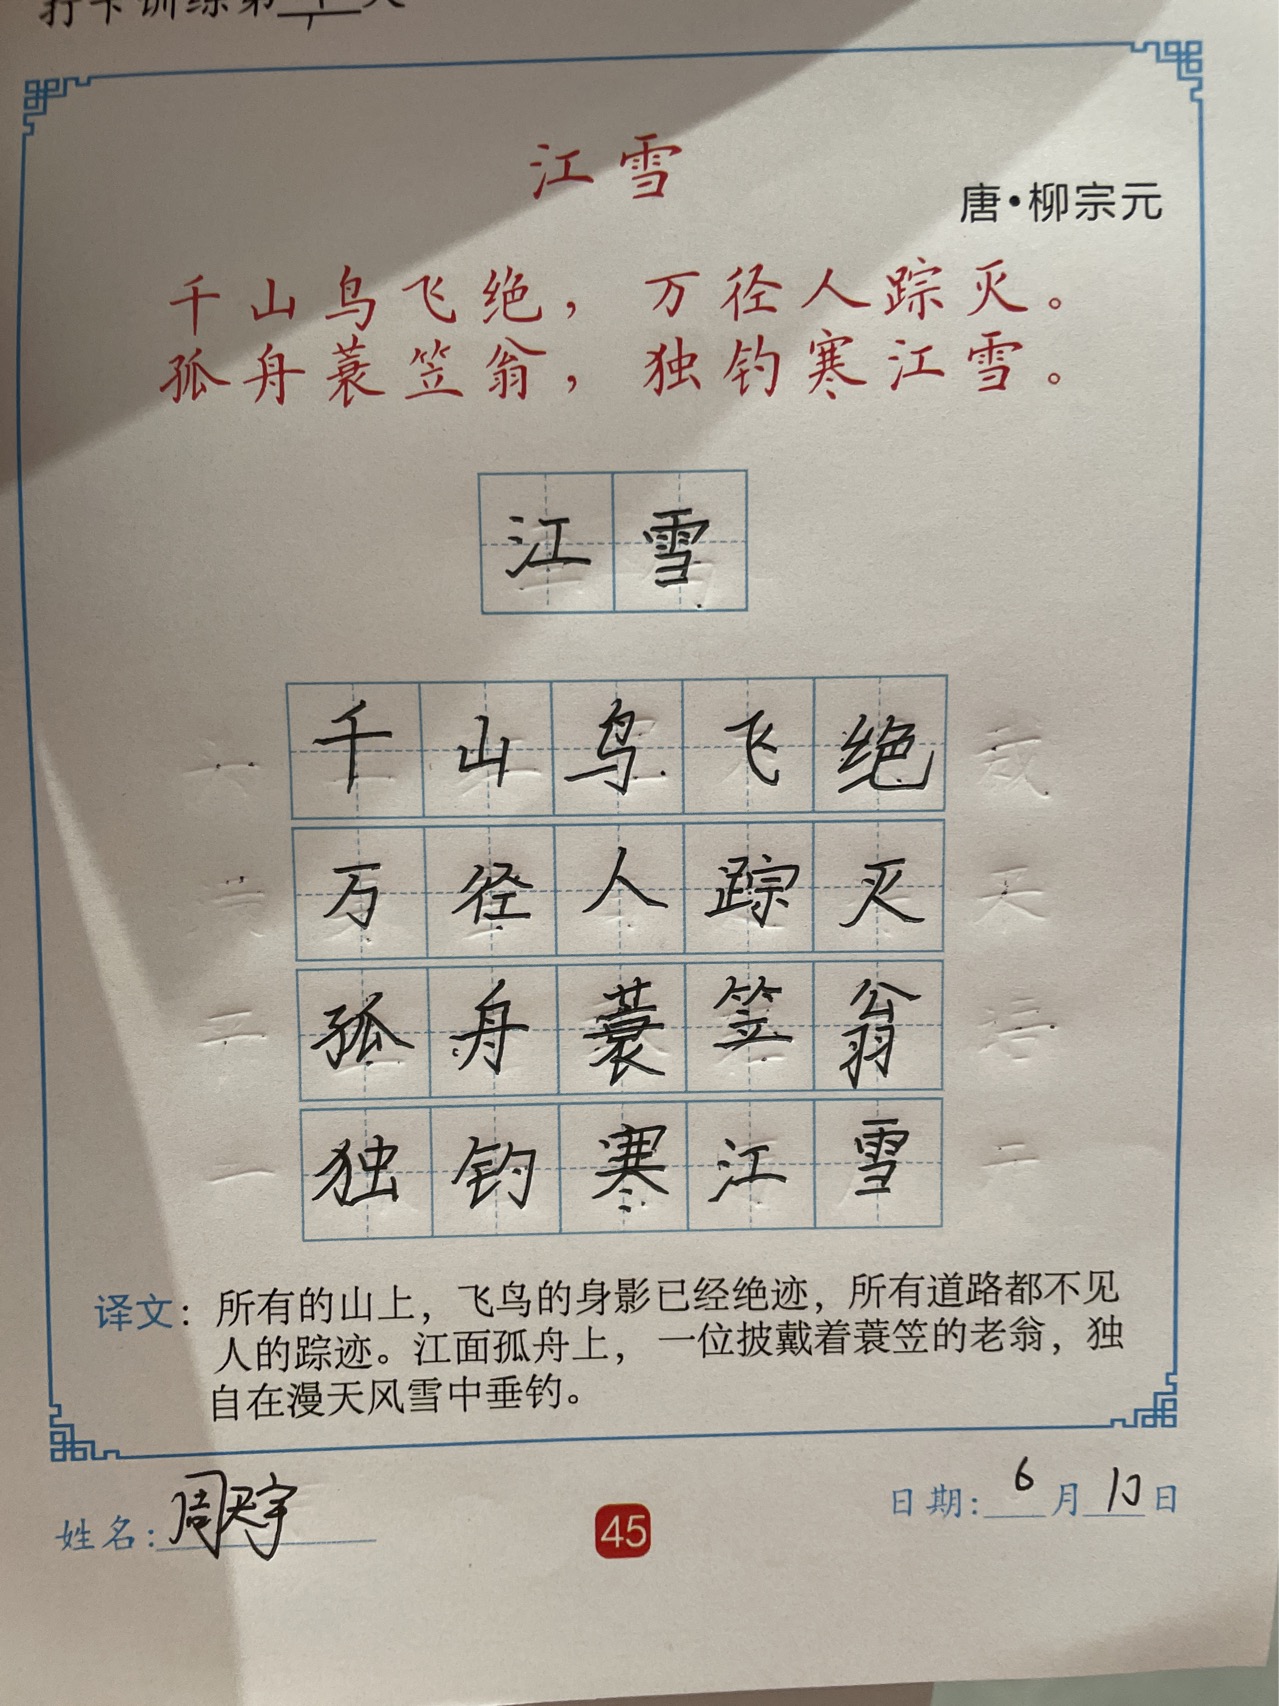 打卡训练第 天
江雪
唐·柳宗元
千山鸟飞绝，万径人踪灭。
孤舟蓑笠翁，独钓寒江雪。
江雪
千山鸟飞绝
万径人踪灭
孤舟蓑笠翁
独钓寒江雪
译文：所有的山上，飞鸟的身影已经绝迹，所有道路都不见
人的踪迹。江面孤舟上，一位披戴着蓑笠的老翁，独
自在漫天风雪中垂钓。
姓名：周天宇
45
日期：6月10日